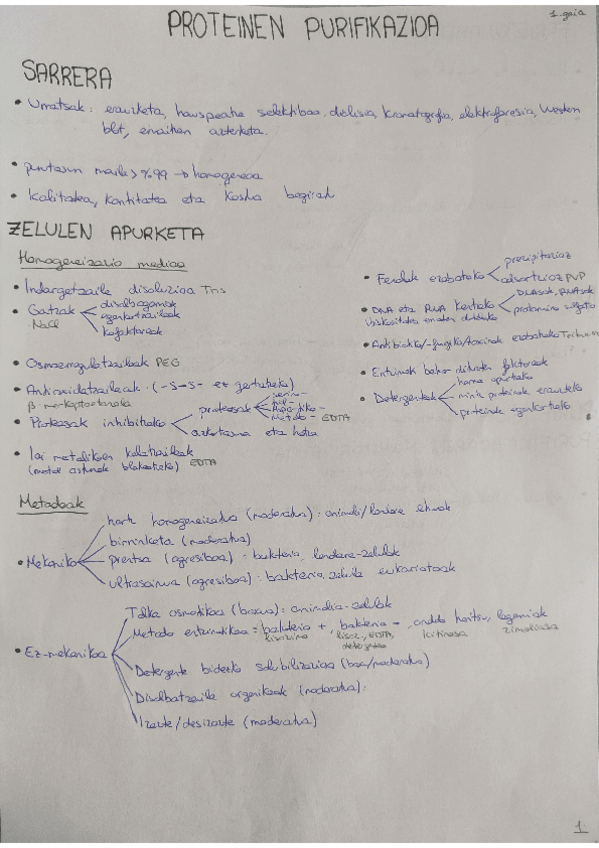 1. gaia
PROTEINEN PURIFIKAZIOA
SARRERA
• Urratsak: erauzketa, hauspeatze selektiboa, dialisia, kromatografia, elektroforesia, Western
blot, emaitzen azterketa.
• purutasun maila > %99 → homogeneoa
• Kalitatea, kantitatea eta kostua begiratu
ZELULEN APURKETA
Homogeneizazio medioa
• Indargetzaile disoluzioa Tris
• Gatzak
disolbagarriak
egonkortzaileak
kofaktoreak
NaCl
• Osmoerregulatzaileak PEG
• Antioxidatzaileak (-S-S- ez gertatzeko)
β-merkaptoetanola
• Proteasak inhibitzeko
proteasak
serina-
Aspartiko-
Metalo- EDTA
azkartasuna eta hotza
• Ioi metalikoen kelatzaileak EDTA
(metal astunak blokeatzeko)
• Fenolak ezabatzeko
precipitazioz
adsortzioz PVP
• DNA eta RNA kentzeko
DNAsak, RNAsak
protamina sulfato
biskositatea ematen dutelako
• Antibiotiko/-fungiko/toxinak ezabatzeko
• Entzimak behar dituzten faktoreak
• Detergenteak
horma apurtzeko
mintz proteinak erauzteko
proteinak egonkortzeko
Metodoak
• Mekanikoa
hortz homogeneizadorea (moderatua): animali/landare ehunak
birrinketa (moderatua)
prentsa (agresiboa): bakteria, landare-zelulak
ultrasoinua (agresiboa): bakteria, zelula eukariotoak
• Ez-mekanikoa
Talka osmotikoa (baxua): animalia-zelulak
Metodo entzimatikoa: bakteria +, bakteria -, onddo haritsu, legamiak
lisozima
lisoz, EDTA,
detergentea
kitinasa
zimoliasa
Detergente bidezko solubilizazioa (baxu/moderatua)
Disolbatzaile organikoak (moderatua):
Izozte/desizozte (moderatua)
1